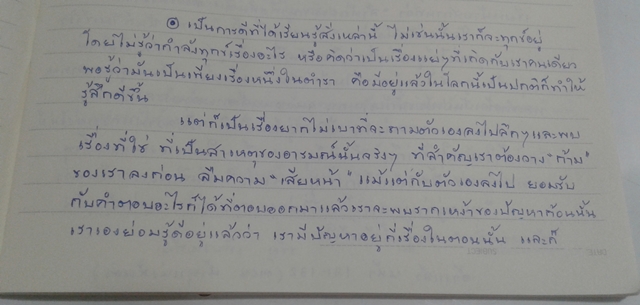 ⦿ เป็นการดีที่ได้เรียนรู้สิ่งเหล่านี้ ไม่เช่นนั้นเราก็จะทุกข์อยู่
โดยไม่รู้ว่ากำลังทุกข์เรื่องอะไร หรือคิดว่าเป็นเรื่องแย่ๆที่เกิดกับเราคนเดียว
พอรู้ว่ามันเป็นเพียงเรื่องหนึ่งในตำรา คือมีอยู่แล้วในโลกนี้เป็นปกติก็ทำให้
รู้สึกดีขึ้น
แต่ก็เป็นเรื่องยากไม่เบาที่จะถามตัวเองลงไปลึกๆและพบ
เรื่องที่ใช่ ที่เป็นสาเหตุของอารมณ์นั้นจริงๆ ที่สำคัญเราต้องวาง "ก้าม"
ของเราลงก่อน ลืมความ "เสียหน้า" แม้แต่กับตัวเองลงไป ยอมรับ
กับคำตอบอะไรก็ได้ที่ตอบออกมาแล้วเราจะพบรากเหง้าของปัญหาก้อนนั้น
เราเองย่อมรู้ดีอยู่แล้วว่า เรามีปัญหาอยู่กี่เรื่องในตอนนั้น และก็